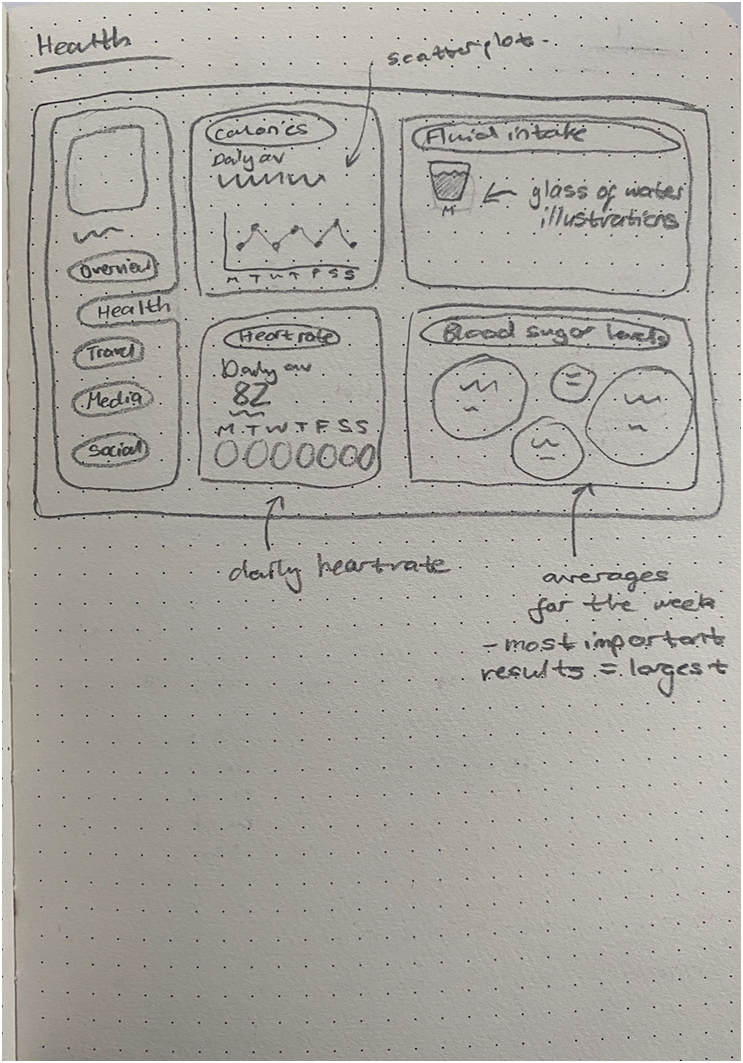 Health
scatterplot-
Calories
Daily av
M T W T F S S
Fluid intake
M
glass of water
illustrations
Overview
Health
Travel
Media
Social
Heart rate
Daily av
82
M T W T F S S
Blood sugar levels
daily heartrate
averages
for the week
- most important
results = largest